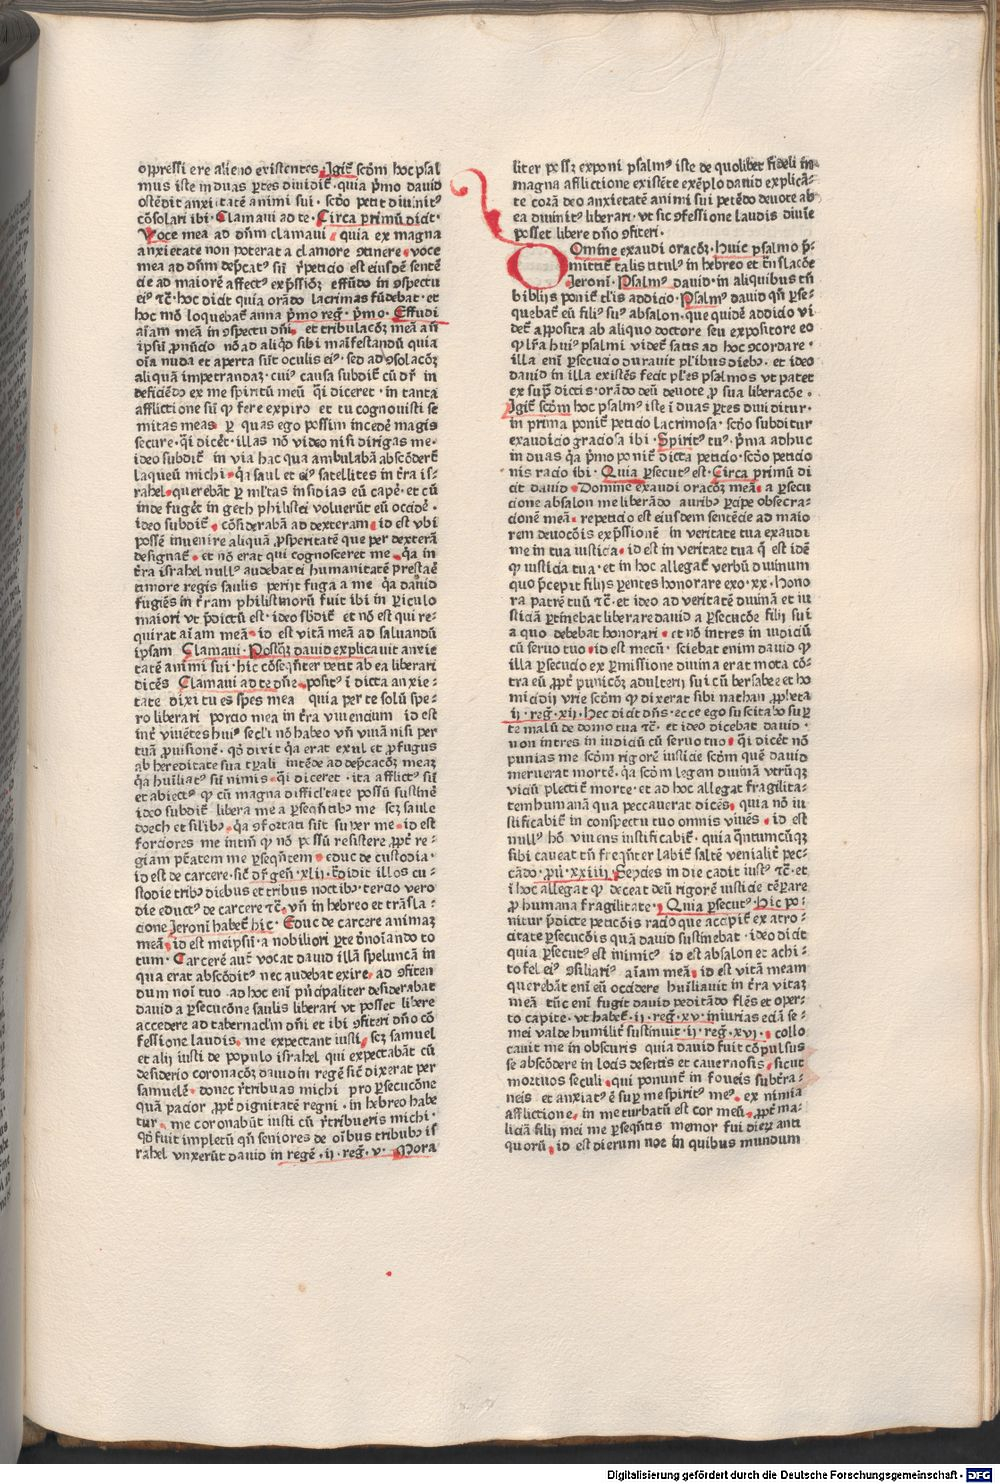 oppressi ere alieno existentes. Igit̄ scd̄m hoc psal
mus iste in duas p̲tes diuidit̄. quia p̲mo dauid
ostēdit anxietatē animi sui. scd̄o petit diuinit᷒
cōsolari ibi. Clamaui ad te. Circa primū dicit.
Voce mea ad dn̄m clamaui. quia ex magna
anxietate non poterat a clamore ꝯtinere. voce
mea ad dn̄m dep̄cat᷒ sū r̄peticio est eiusdē sentē
cie ad maiorē affect᷒ exp̄ssiōꝫ effūdo in ꝯspectu
ei᷒ ⁊c̄. hoc dicit quia orādo lacrimas fūdebat. et
hoc mō loquebat̄ anna p̄mo reḡ. p̄mo. Effudi
aīam meā in ꝯspectu dn̄i. et tribulacōꝫ meā añ
ip̄m ꝓnūcio nō ad aliqd̄ sibi māifestandū quia
oīa nuda et aperta sūt oculis ei᷒. sed ad ꝯsolacōꝫ
aliquā impetrandaꝫ. cui᷒ causa subdit̄ cū dr̄ in
deficiēdo ex me spiritū meū q̄i diceret. in tanta
afflictione sū ꝙ fere expiro et tu cognouisti se
mitas meas ꝑ quas ego possim incedē magis
secure. q̄i dicēt. illas nō video nisi dirigas me.
ideo subdit̄ in via hac qua ambulabā abscōderēt
laqueū michi. q̄a saul et ei᷒ satellites in t̄ra is-
rahel. querebāt ꝑ ml̄tas insidias eū capē. et cū
inde fugēt in geth philistei voluerūt eū occidē.
ideo subdit̄. cōsiderabā ad dexteram. id est vbi
possē inuenire aliquā ꝓsperitatē que per dexterā
designat̄. et nō erat qui cognosceret me. q̄a in
t̄ra israhel null᷒ audebat ei humanitatē prestaē
timore regis saulis perijt fuga a me q̄a dauid
fugiēs in t̄ram philistinorū fuit ibi in ꝑiculo
maiori vt p̄dictū est. ideo sbdit̄ et nō est qui re-
quirat aīam meā. id est vitā meā ad saluandū
ipsam Clamaui. Postꝙ̄ dauid explicauit anxie
tatē animi sui. hic cōseqn̄ter petit ab ea liberari
dicēs Clamaui ad te dn̄e. posit᷒ ī dicta anxie-
tate dixi tu es spes mea quia per te solū spe-
ro liberari porcio mea in t̄ra viuencium id est
int̄ viuētes hui᷒ secl̄i nō habeo vn̄ viuā nisi per
tuā ꝓuisionē. qd̄ dixit q̄a erat exul et ꝓfugus
ab hereditate sua tp̄ali intēde ad dep̄cacōꝫ meaꝫ
q̄a hūiliat᷒ sū nimis. q̄i diceret. ita afflict᷒ sū
et abiect᷒ ꝙ cū magna difficl̄tate possū sustinē
ideo subdit̄ libera me a ꝑseqn̄tibꝫ me scꝫ saule
doech et sil̄ibꝫ. q̄a ꝯfortati sūt super me. id est
forciores me intm̄ ꝙ nō possū resistere ꝓpt̄ re-
giam ptātem me ꝑseqn̄tem. educ de custodia.
id est de carcere. sic̄ dr̄ gen̄. xlii. t̄didit illos cu-
stodie tribꝫ diebus et tribus noctibꝫ. tercio vero
die educt᷒ de carcere ⁊c̄. vn̄ in hebreo et trāsla-
cione Jeronī habet̄ hic. Educ de carcere animaꝫ
meā. id est meip̄sū. a nobiliori ꝑte d̄noīando to
tum. Carcerē aut̄ vocat dauid illā speluncā in
qua erat abscōdit᷒ nec audebat exire. ad ꝯfiten
dum noī tuo ad hoc enī p̄ncipaliter desiderabat
dauid a ꝑsecucōne saulis liberari vt posset libere
accedere ad tabernacl̄m dn̄i et ibi ꝯfiteri dn̄o cō
fessione laudis. me expectant iusti. scꝫ samuel
et alij iusti de populo israhel qui expectabāt cū
desiderio coronacōꝫ dauid in regē sic̄ dixerat per
samuelē. donec r̄tribuas michi pro ꝑsecucōne
quā pacior ꝓpt̄ dignitatē regni. in hebreo habe
tur. me coronabūt iusti cū r̄tribueris michi.
qd̄ fuit impletū qn̄ seniores de oībus tribubꝫ is
rahel vnxerūt dauid in regē. ii. reḡ. v. Mora
liter posset exponi psalm᷒ iste de quolibet fideli in
magna afflictione existēte exēplo dauid explicā-
te corā deo anxietatē animi sui petēdo deuote ab
ea diuinit᷒ liberari. vt sic ꝯfessione laudis diuīe
posset libere dn̄o ꝯfiteri.
Domine exaudi oracōꝫ. Huic psalmo p̄-
mittit᷒ talis titul᷒ in hebreo et trn̄slacōe
Jeronī. Psalm᷒ dauid. in aliquibus tn̄
biblijs ponit̄ tl̄is addicio. Psalm᷒ dauid qn̄ ꝑse-
quebat̄ eū fili᷒ su᷒ absalon. que quidē addicio vi
det̄ apposita ab aliquo doctore seu expositore eo
ꝙ lr̄a hui᷒ psalmi videt̄ satis ad hoc ꝯcordare.
illa enī ꝑsecucio durauit pl̄ibus diebꝫ. et ideo
dauid in illa existēs fecit pl̄es psalmos vt patet
ex sup̄ dictis. orādo deū deuote ꝓ sua liberacōe.
Igit̄ scd̄m hoc psalm᷒ iste ī duas ꝑtes diuiditur.
in prima ponit̄ peticio lacrimosa. scd̄o subditur
exaudicio graciosa ibi. Spirit᷒ tu᷒. p̄ma adhuc
in duas q̄a p̄mo ponit̄ dicta peticio. scd̄o peticio
nis racio ibi. Quia ꝑsecut᷒ est. Circa primū di
cit dauid. Domine exaudi oracōꝫ meā. a ꝑsecu
cione absalon me liberādo auribꝫ ꝑcipe obsecra-
cionē meā. repeticio est eiusdem sentēcie ad maio
rem deuocōis exp̄ssionē in veritate tua exaudi
me in tua iusticia. id est in veritate tua q̄ est idē
ꝙ iusticia tua. et in hoc allegat̄ verbū diuinum
quo p̄cepit filijs ꝑentes honorare exo. xx. Hono
ra patrē tuū ⁊c̄. et ideo ad veritatē diuinā et iu
sticiā ꝑtinebat liberare dauid a ꝑsecucōe filij sui
a quo debebat honorari. et nō intres in iudiciū
cū seruo tuo. id est mecū. sciebat enim dauid ꝙ
illa ꝑsecucio ex ꝑmissione diuina erat mota cō-
tra eū ꝓpt̄ punicōꝫ adulterij sui cū bersabee et ho
micidij vrie scd̄m ꝙ dixerat sibi nathan ꝓpheta
ii. reḡ. xii. Hec dicit dn̄s. ecce ego suscitabo sup̄
te malū de domo tua ⁊c̄. et ideo dicebat dauid.
non intres in iudiciū cū seruo tuo. q̄i dicēt nō
punias me scd̄m rigorē iusticie scd̄m quē dauid
meruerat mortē. q̄a scd̄m legem diuinā vtrūqꝫ
viciū plectit̄ morte. et ad hoc allegat fragilita-
tem humanā qua peccauerat dicēs. quia nō iu
stificabit̄ in conspectu tuo omnis viuēs. id est
null᷒ hō viuens iustificabit̄. quia q̄ntumcūqꝫ
sibi caueat tn̄ freqn̄ter labit̄ saltē venialit̄ pec-
cādo. ꝓu᷒. xxiiii. Sepcies in die cadit iust᷒ ⁊c̄. et
ī hoc allegat ꝙ deceat deū rigorē iusticie tēꝑare
ꝓ humana fragilitate. Quia ꝑsecut᷒. Hic po-
nitur p̄dicte peticōis racio que accipit̄ ex atro-
citate ꝑsecucōis quā dauid sustinebat. ideo dicit
quia ꝑsecut᷒ est inimic᷒ id est absalon et achi-
tofel ei᷒ ꝯsiliari᷒ aīam meā. id est vitā meam
querebāt enī eū occidere hūiliauit in t̄ra vitaꝫ
meā tūc enī fugit dauid peditādo flēs et oper-
to capite. vt habet̄. ii. reḡ. xv. iniurias eciā se-
mei valde humilit̄ sustinuit. ii. reḡ. xvi. collo
cauit me in obscuris quia dauid fuit cōpulsus
se abscōdere in locis desertis et cauernosis. sicut
mortuos seculi. qui ponunt̄ in foueis subt̄ra-
neis et anxiat᷒ ē sup̄ me spirit᷒ me᷒. ex nimia
afflictione. in me turbatū est cor meū. ꝓpt̄ ma-
liciā filij mei me ꝑseqn̄tis memor fui dieꝝ anti
quorū. id est dierum noe in quibus mundum
Digitalisierung gefördert durch die Deutsche Forschungsgemeinschaft - DFG